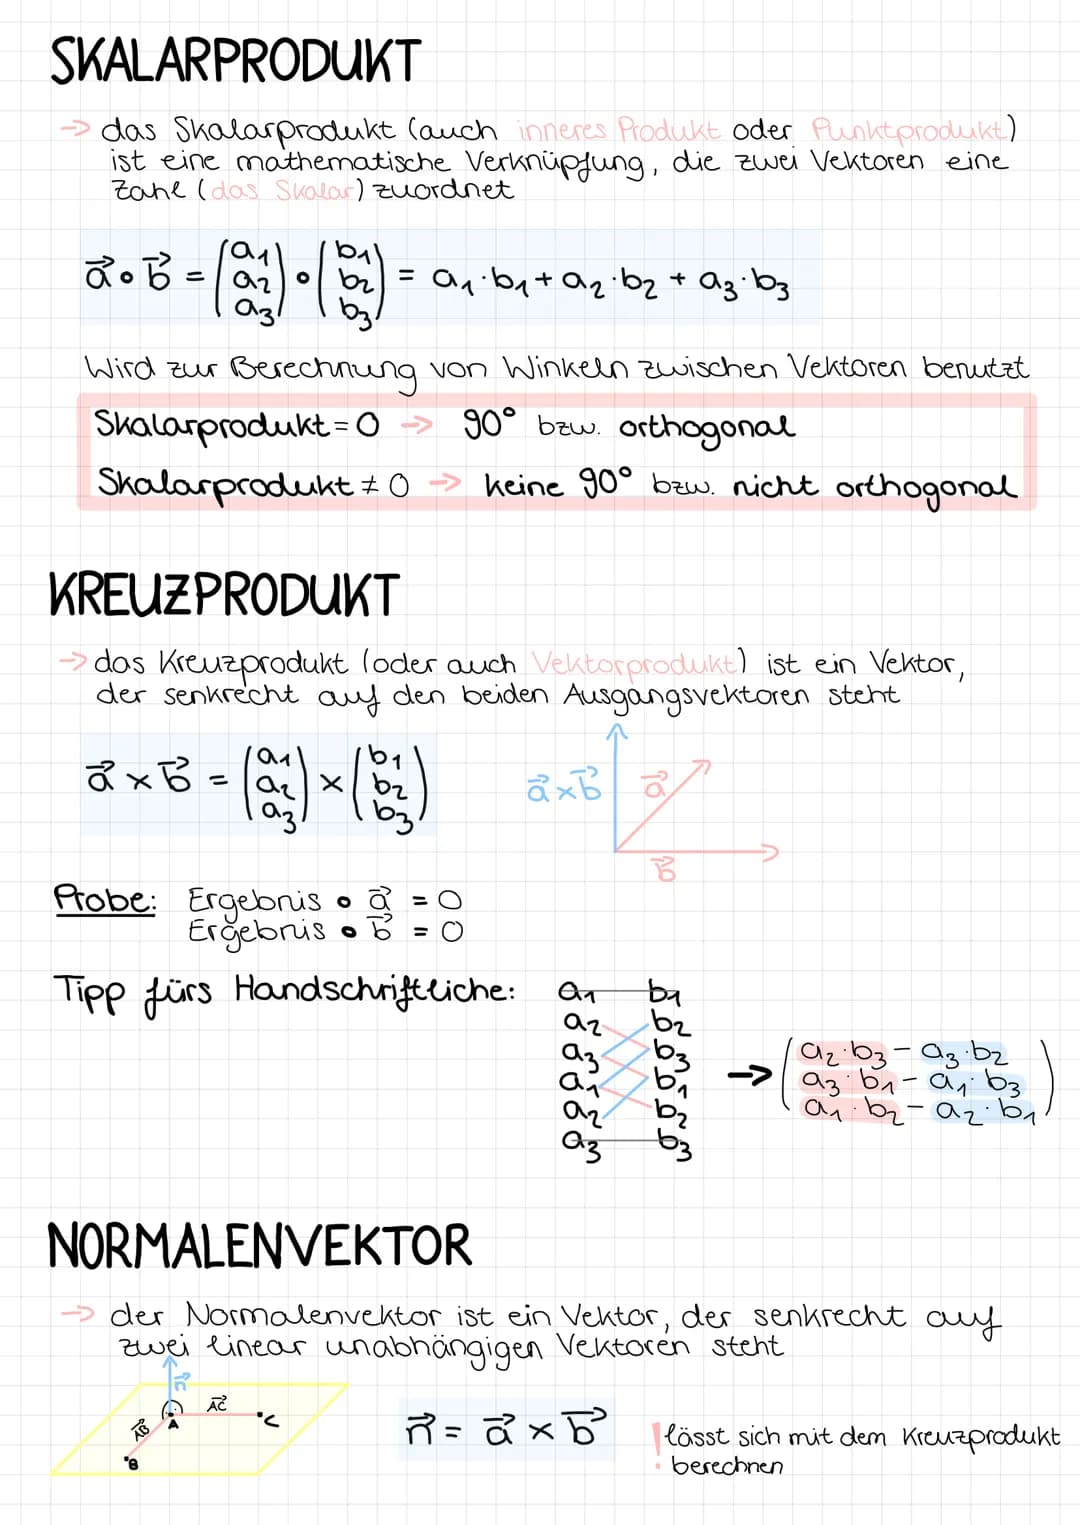 SKALARPRODUKT
→ das Skalarprodukt (auch inneres Produkt oder Punktprodukt)
ist eine mathematische Verknüpfung, die zwei Vektoren eine
Zahl (das Skalar) zuordnet
a⃗ ∘ b⃗ = (a1 a2 a3) ∘ (b1 b2 b3) = a1·b1 + a2·b2 + a3·b3
Wird zur Berechnung von Winkeln zwischen Vektoren benutzt
Skalarprodukt = 0 → 90° bzw. orthogonal
Skalarprodukt ≠ 0 → keine 90° bzw. nicht orthogonal
KREUZPRODUKT
→ das Kreuzprodukt (oder auch Vektorprodukt) ist ein Vektor,
der senkrecht auf den beiden Ausgangsvektoren steht
a⃗ × b⃗ = (a1 a2 a3) × (b1 b2 b3)
a⃗×b⃗ a⃗
b⃗
Probe: Ergebnis ∘ a⃗ = 0
Ergebnis ∘ b⃗ = 0
Tipp fürs Handschriftliche:
a1 b1
a2 b2
a3 b3
a1 b1
a2 b2
a3 b3
→ (a2·b3 − a3·b2
a3·b1 − a1·b3
a1·b2 − a2·b1)
NORMALENVEKTOR
→ der Normalenvektor ist ein Vektor, der senkrecht auf
zwei linear unabhängigen Vektoren steht
n⃗
AC⃗
A
C
AB⃗
B
n⃗ = a⃗ × b⃗
! lässt sich mit dem Kreuzprodukt
berechnen